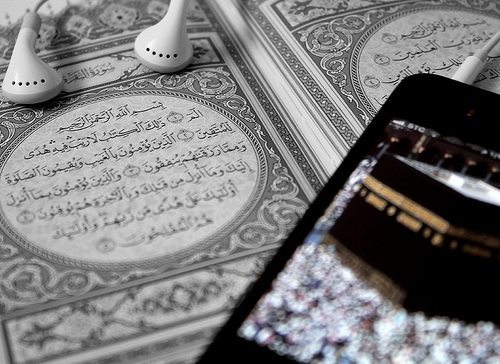 سُورَةُ البَقَرَةِ
بِسْمِ اللَّهِ الرَّحْمَٰنِ الرَّحِيمِ
الٓمٓ ١ ذَٰلِكَ ٱلْكِتَٰبُ لَا رَيْبَ فِيهِ هُدًى
لِّلْمُتَّقِينَ ٢ ٱلَّذِينَ يُؤْمِنُونَ بِٱلْغَيْبِ وَيُقِيمُونَ ٱلصَّلَوٰةَ
وَمِمَّا رَزَقْنَٰهُمْ يُنفِقُونَ ٣ وَٱلَّذِينَ يُؤْمِنُونَ بِمَآ أُنزِلَ
إِلَيْكَ وَمَآ أُنزِلَ مِن قَبْلِكَ وَبِٱلْأٓخِرَةِ هُمْ يُوقِنُونَ ٤
أُو۟لَٰٓئِكَ عَلَىٰ هُدًى مِّن رَّبِّهِمْ وَأُو۟لَٰٓئِكَ
هُمُ ٱلْمُفْلِحُونَ ٥